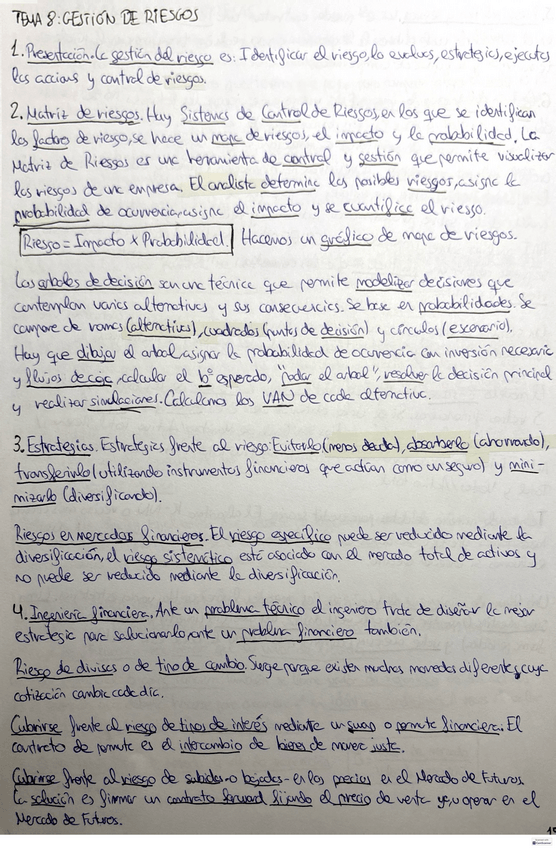 TEMA 8: GESTIÓN DE RIESGOS
1. Presentación. La gestión del riesgo es: Identificar el riesgo, lo evaluas, estrategias, ejecutas
las acciones y control de riesgos.
2. Matriz de riesgos. Hay Sistemas de Control de Riesgos, en los que se identifican
los factores de riesgo, se hace un mapa de riesgos, el impacto y la probabilidad. La
Matriz de Riesgos es una herramienta de control y gestión que permite visualizar
los riesgos de una empresa. El analista determina los posibles riesgos, asigna la
probabilidad de ocurrencia, asigna el impacto y se cuantifica el riesgo.
Riesgo = Impacto x Probabilidad. Hacemos un gráfico de mapa de riesgos.
Los arboles de decisión son una técnica que permite modelizar decisiones que
contemplan varias alternativas y sus consecuencias. Se basa en probabilidades. Se
compone de ramas (alternativas), cuadrados (puntos de decisión) y círculos (escenario).
Hay que dibujar el arbol, asignar la probabilidad de ocurrencia con inversión necesaria
y flujos de caja, calcular el bº esperado, "podar el arbol", resolver la decisión principal
y realizar simulaciones. Calculamos los VAN de cada alternativa.
3. Estrategias. Estrategias frente al riesgo: Evitarlo (menos deuda), absorberlo (ahorrando),
transferirlo (utilizando instrumentos financieros que actúan como un seguro) y mini-
mizarlo (diversificando).
Riesgos en mercados financieros. El riesgo específico puede ser reducido mediante la
diversificación, el riesgo sistemático está asociado con el mercado total de activos y
no puede ser reducido mediante la diversificación.
4. Ingeniería financiera. Ante un problema técnico el ingeniero trata de diseñar la mejor
estrategia para solucionarlo, ante un problema financiero también.
Riesgo de divisas o de tipo de cambio. Surge porque existen muchas monedas diferentes, cuya
cotización cambia cada día.
Cubrirse frente al riesgo de tipos de interés mediante un swap o permuta financiera. El
contrato de permuta es el intercambio de bienes de manera justa.
Cubrirse frente al riesgo de subidas-o bajadas-en los precios en el Mercado de Futuros.
La solución es firmar un contrato forward fijando el precio de venta ya, u operar en el
Mercado de Futuros.